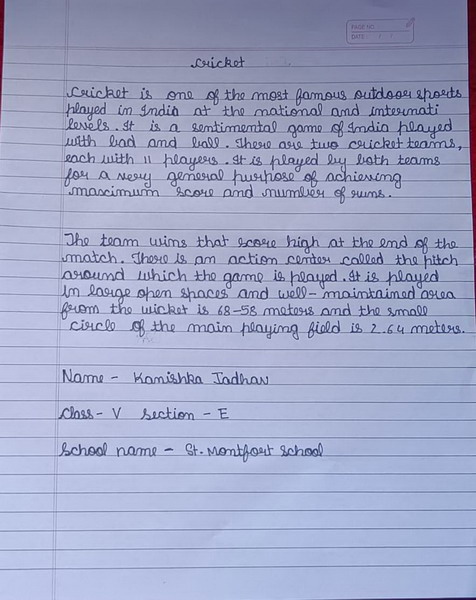 PAGE NO.
DATE / /
Cricket
Cricket is one of the most famous outdoor sports
played in India at the national and internati
levels. It is a sentimental game of India played
with bad and ball. There are two cricket teams,
each with 11 players. It is played by both teams
for a very general purpose of achieving
maximum score and number of runs.
The team wins that score high at the end of the
match. There is an action center called the pitch
around which the game is played. It is played
in large open spaces and well-maintained area
from the wicket is 68-58 meters and the small
circle of the main playing field is 2.64 meters.
Name - Kanishka Jadhav
Class - V Section - E
School name - St. Montfort School